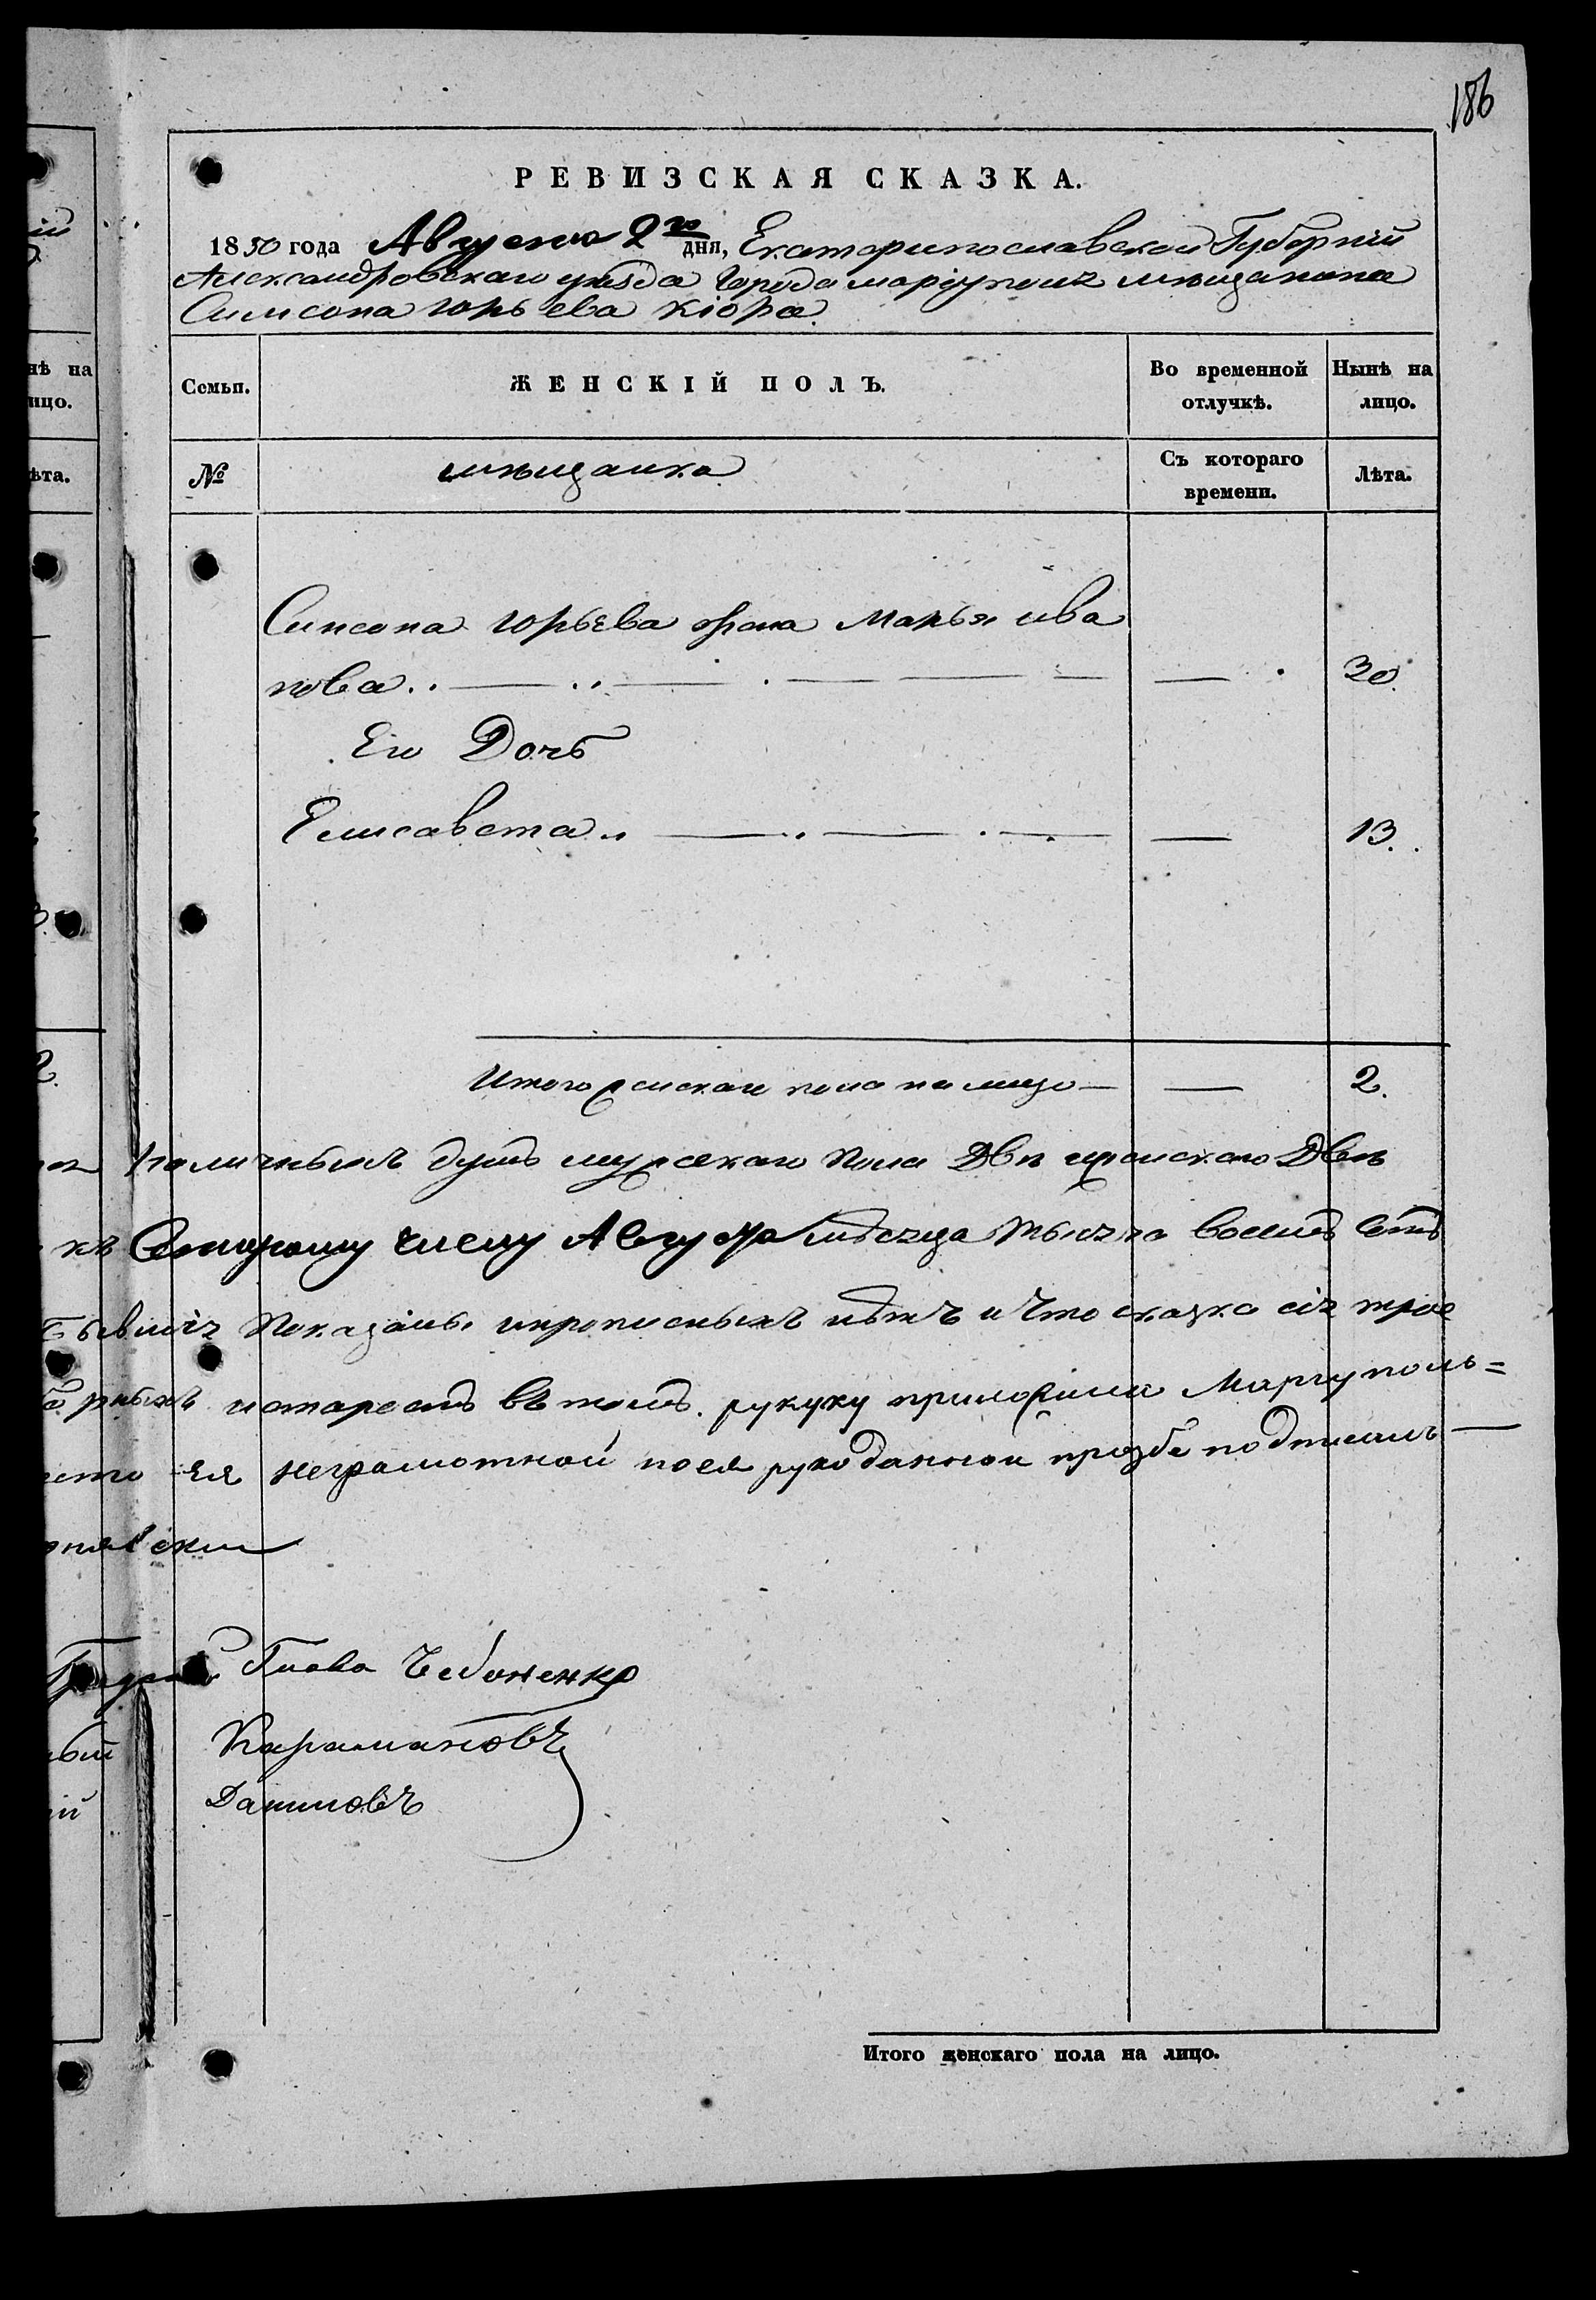 186
РЕВИЗСКАЯ СКАЗКА.
1850 года Августа 2го дня, Екатеринославской Губерніи
Александровскаи уѣзда Города маріуполя мѣщанина
Симсона юрьева Кіора
Семьи. ЖЕНСКІЙ ПОЛЪ. Во временной отлучкѣ. Нынѣ на лицо.
№ мѣщанка Съ котораго времени. Лѣта.
Симсона юрьева жена Марья ива
нова.. — — 30.
Его Дочь
Елисавета.. — — 13.
Итого женскаго пола на лицо — — 2.
наличныхъ душъ мужескаго пола Двѣ женскаго Двѣ
къ Второму числу Августа мѣсяца тысяча восемь сотъ
показаны и прописныхъ нѣтъ и что сказка сія трое
истарость въ томъ руку приложила Маріуполь=
ея неграмотной по ея рукоданной прозбе подписалъ —
Глава Чебоненко
Карамановъ
Даниловъ
Итого женскаго пола на лицо.